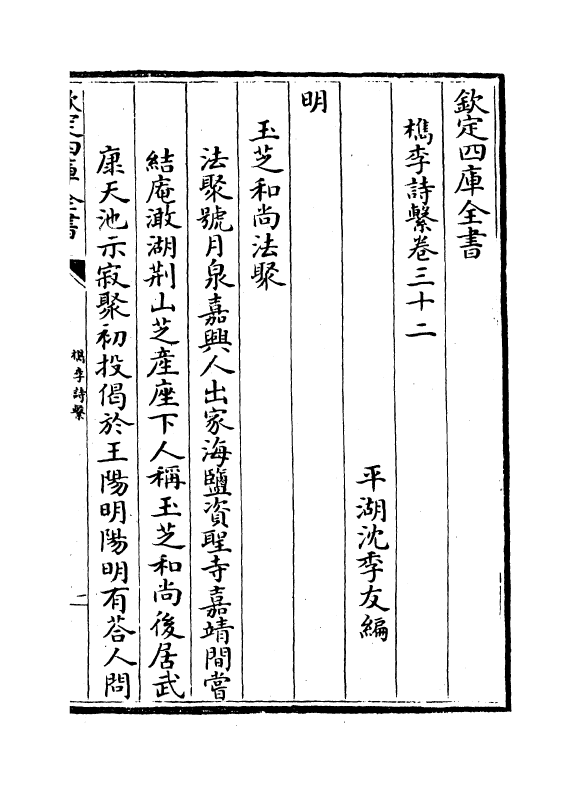 欽定四庫全書
檇李詩繫卷三十二
平湖沈季友編
明
玉芝和尚法聚
法聚號月泉嘉興人出家海鹽資聖寺嘉靖間嘗
結庵澉湖荆山芝產座下人稱玉芝和尚後居武
康天池示寂聚初投偈於王陽明陽明有荅人問
欽定四庫全書
檇李詩繫